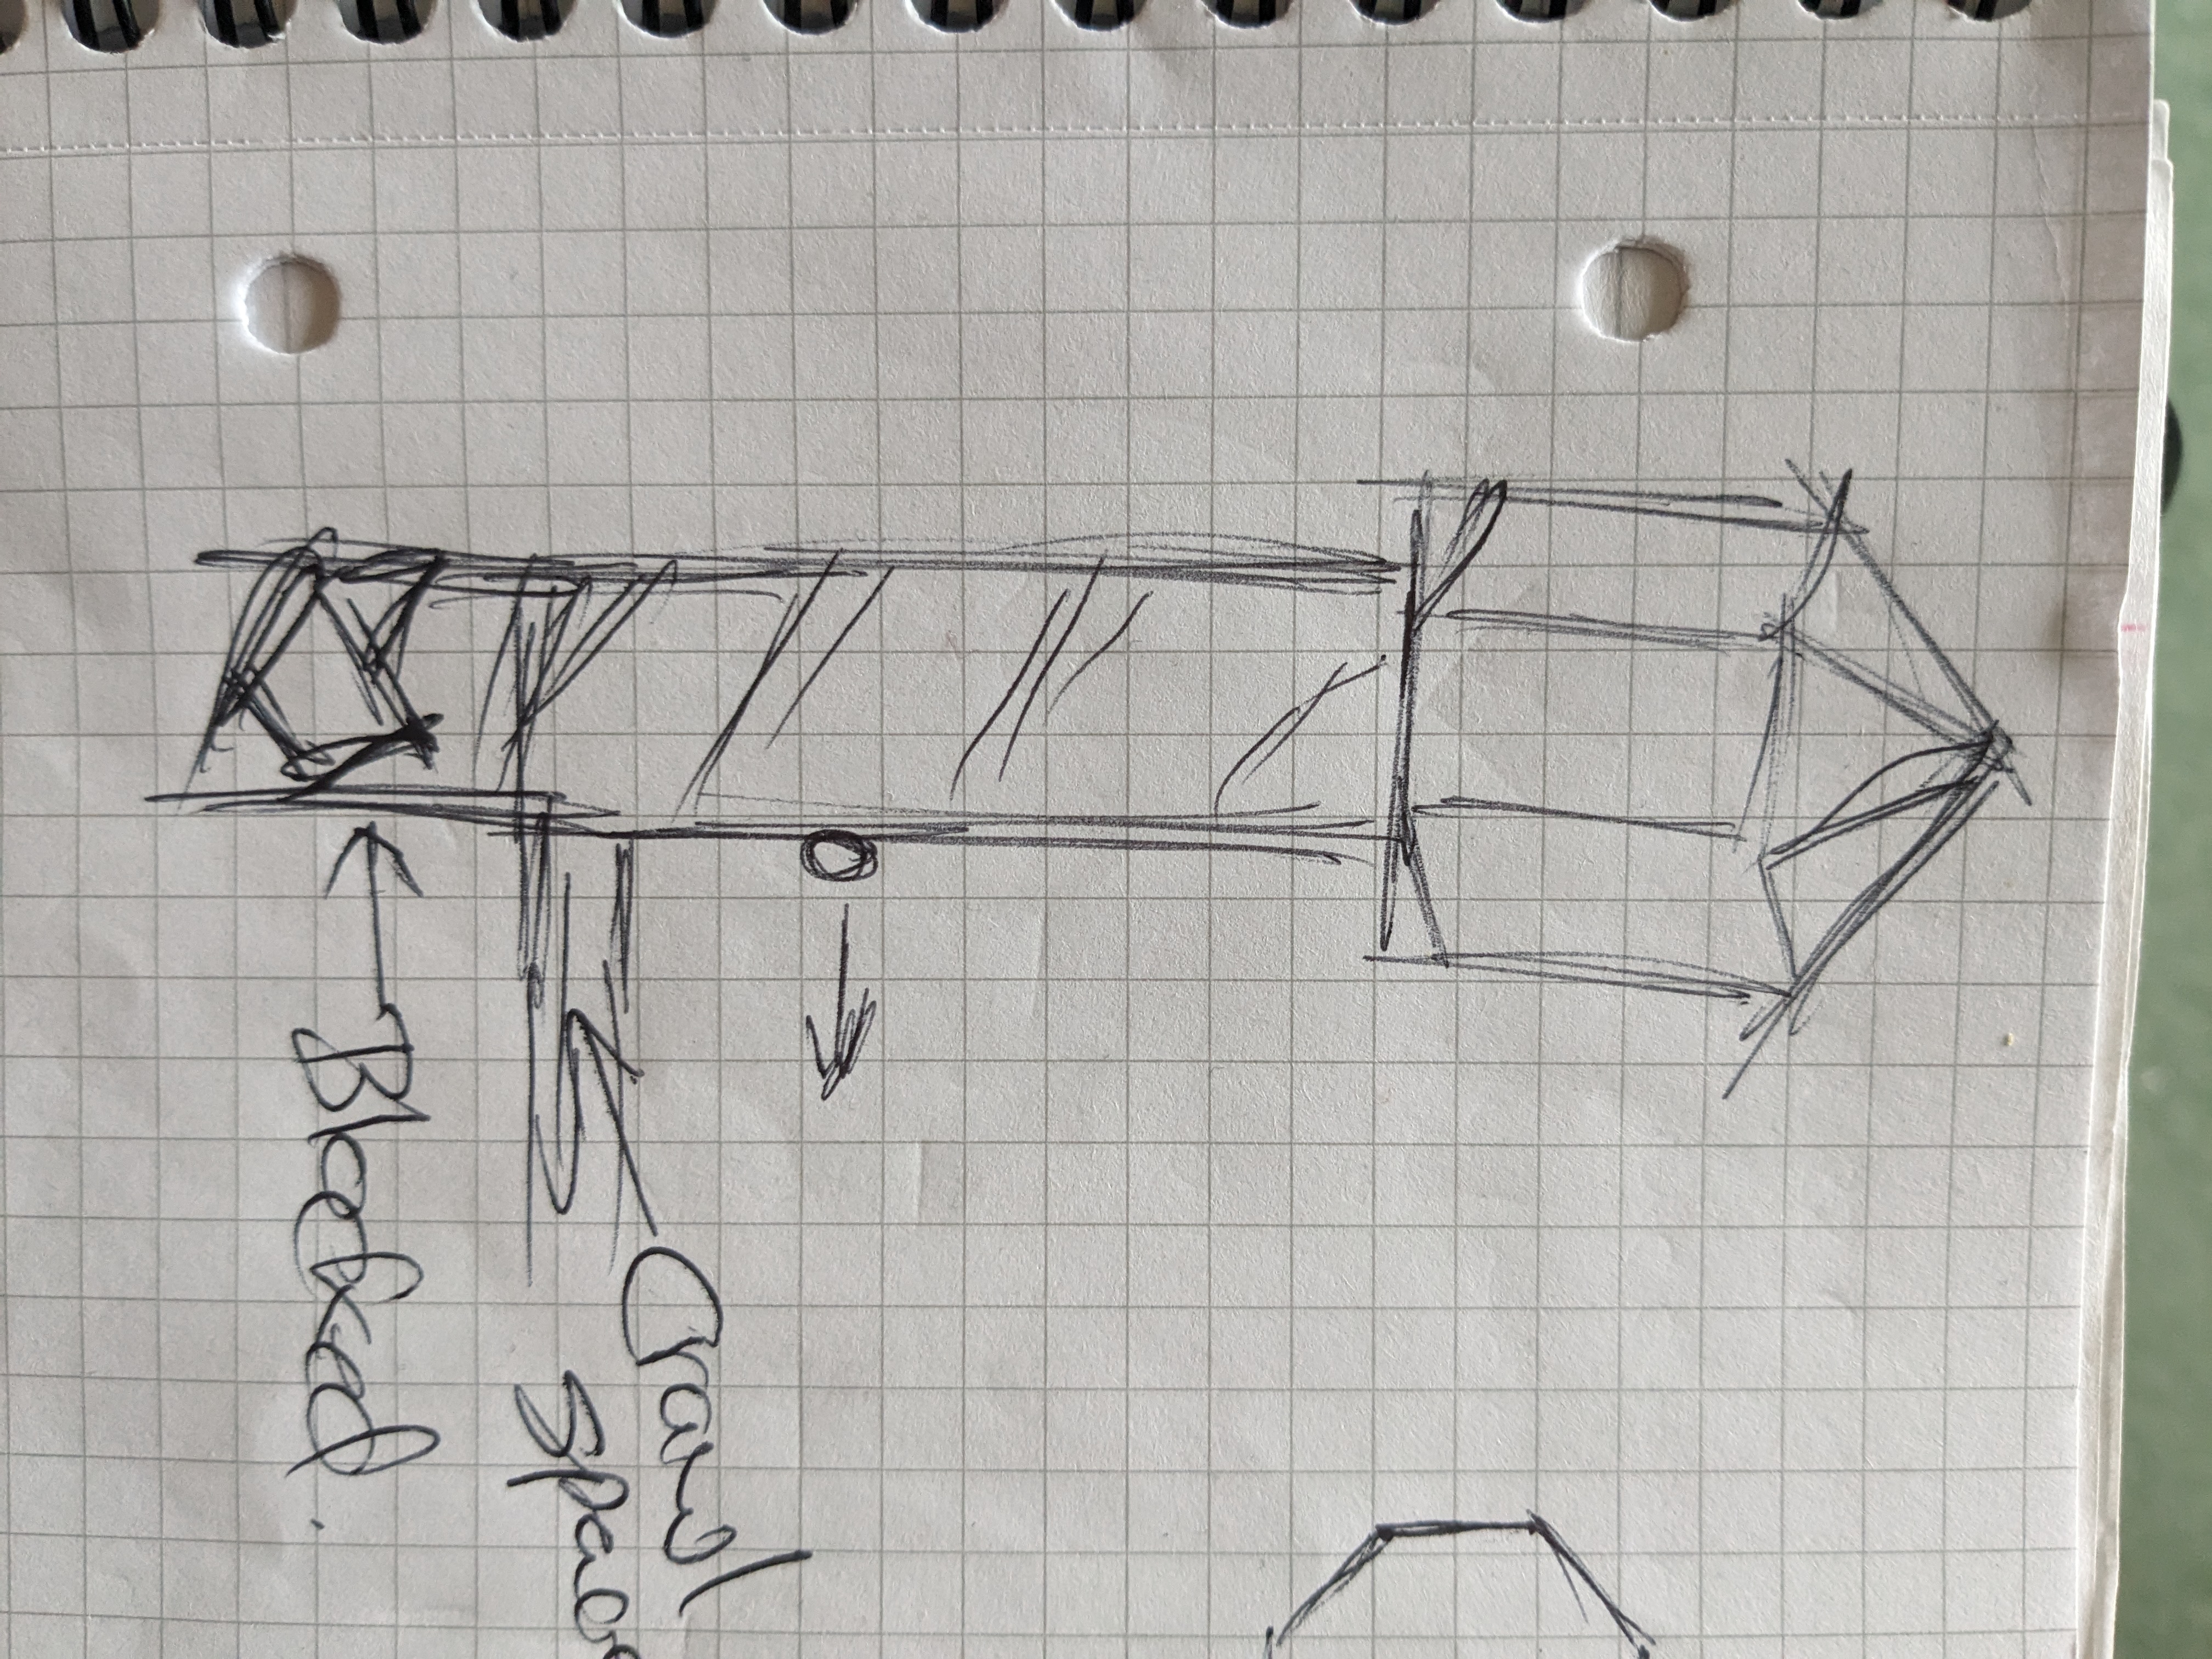 Crawl
space
Blocked.